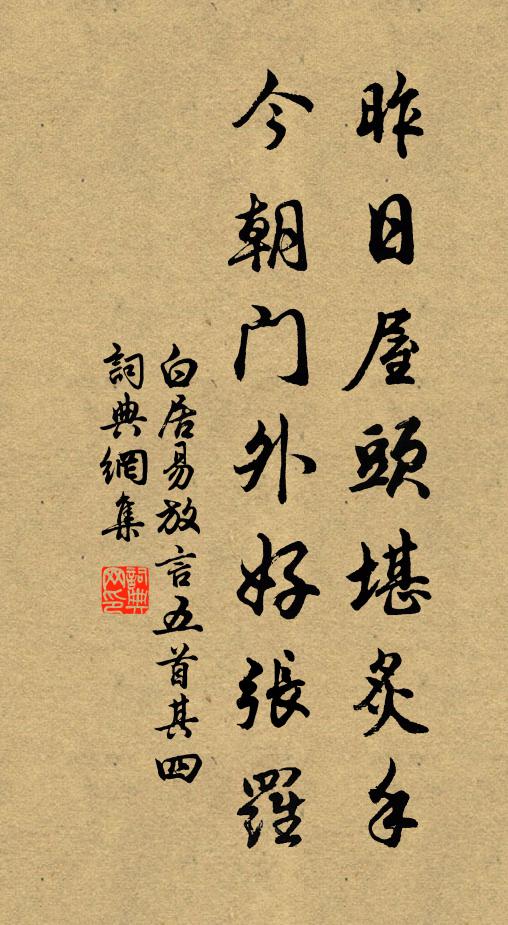 昨日屋頭堪炙手
今朝門外好張羅
白居易放言五首其四
詞典網集
詞典网印